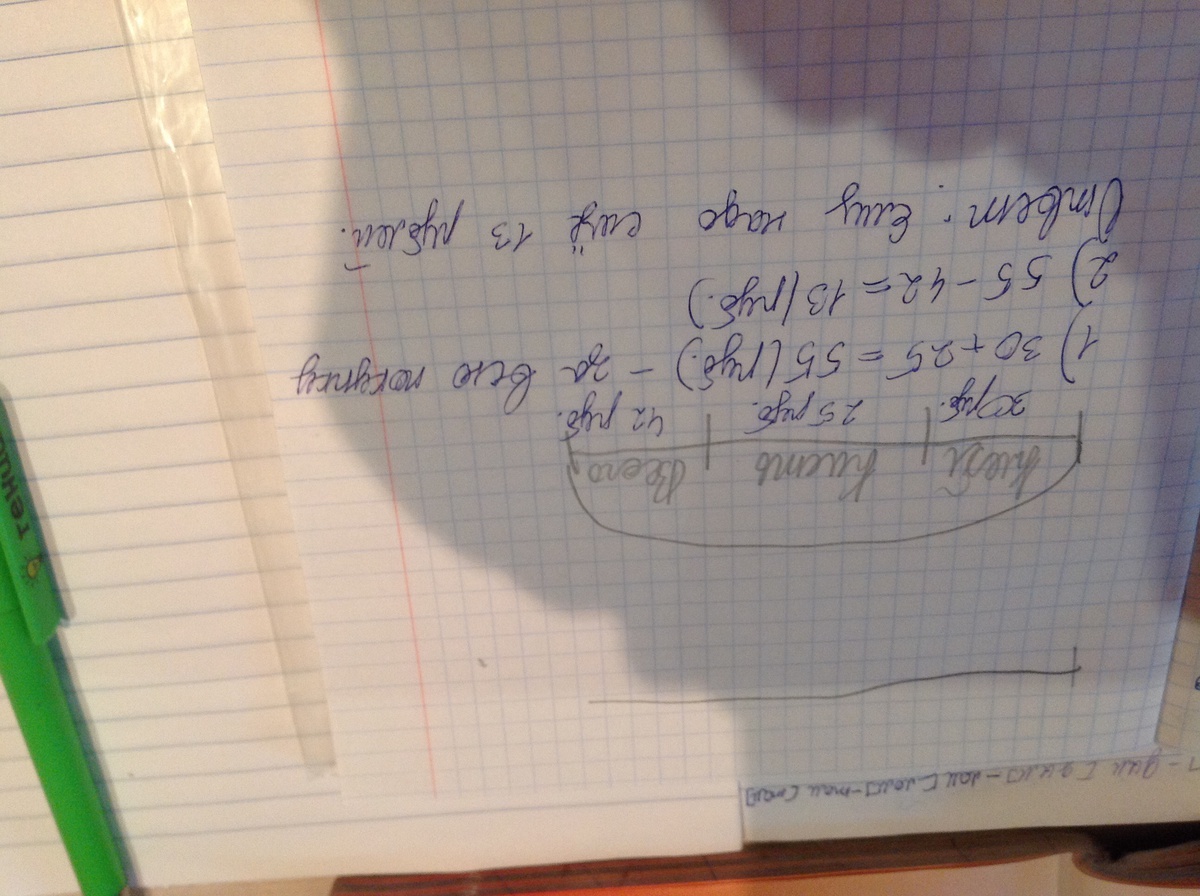 Клей Кисть Всего
30 руб. 25 руб. 42 руб.
1) 30 + 25 = 55 (руб.) - за всю покупку
2) 55 - 42 = 13 (руб.)
Ответ: Ему надо ещё 13 рублей.